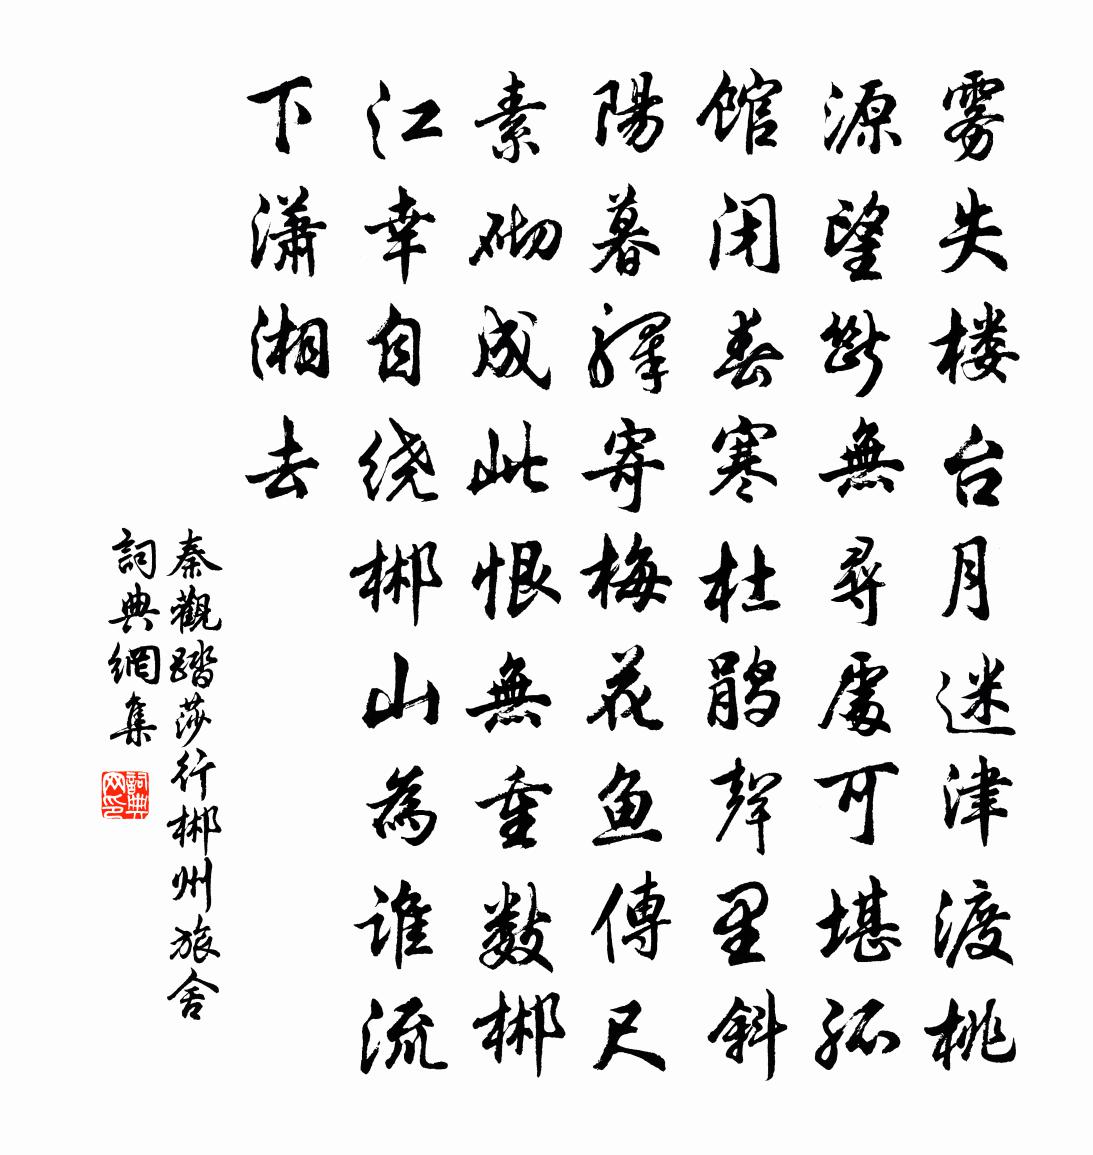 雾失楼台月迷津渡桃
源望斷無尋處可堪孤
馆闭春寒杜鹃聲里斜
陽暮驛寄梅花鱼傳尺
素砌成此恨無重數郴
江幸自绕郴山為谁流
下潇湘去
秦觀踏莎行郴州旅舍
詞典網集
詞典网印